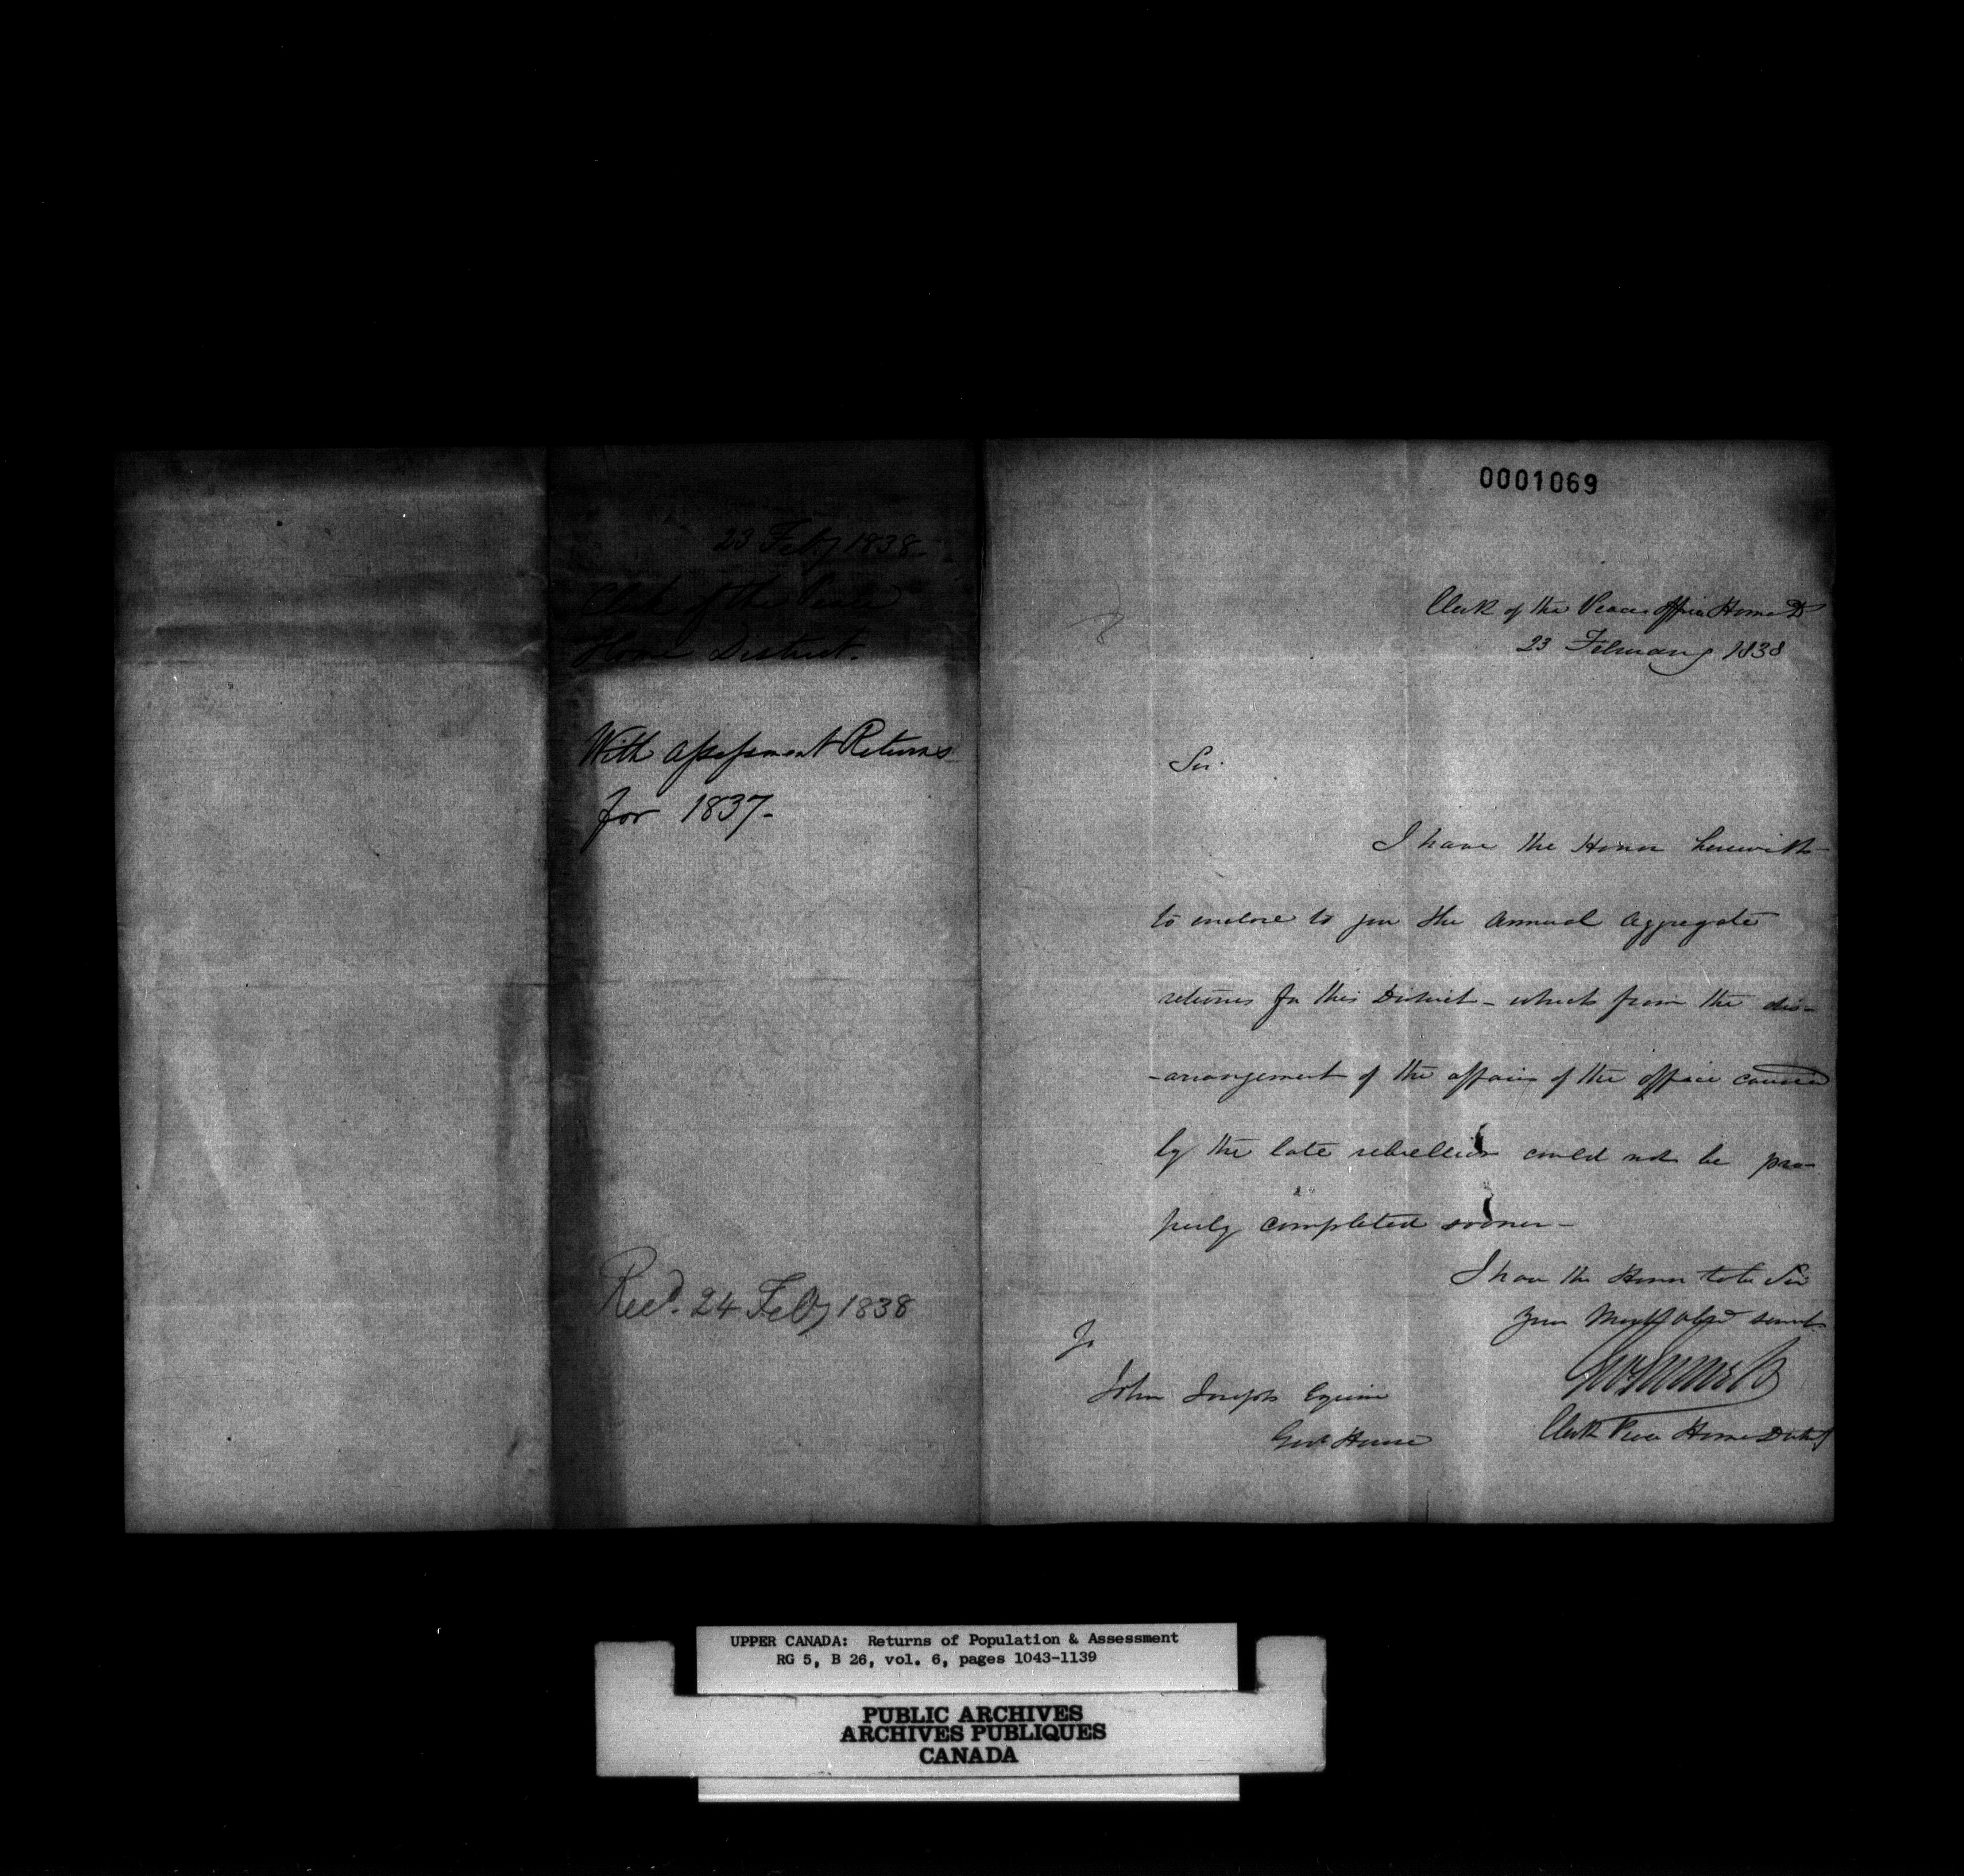 23 Feby 1838-
Clerk of the Peace
Home District.
With Assessment Returns
for 1837-
Recd. 24 Feby 1838
0001069
Clerk of the Peace Office Home D
23 February 1838
Sir.
I have the Honor herewith
to enclose to you the Annual Aggregate
returns for this District - which from the dis-
-arrangement of the affairs of the office caused
by the late rebellion could not be pro-
perly completed sooner -
I have the Honor to be Sir
your Most Obt servt
Clerk Peace Home District
To
John Joseph Esquire
Govt House
UPPER CANADA: Returns of Population & Assessment
RG 5, B 26, vol. 6, pages 1043-1139
PUBLIC ARCHIVES
ARCHIVES PUBLIQUES
CANADA